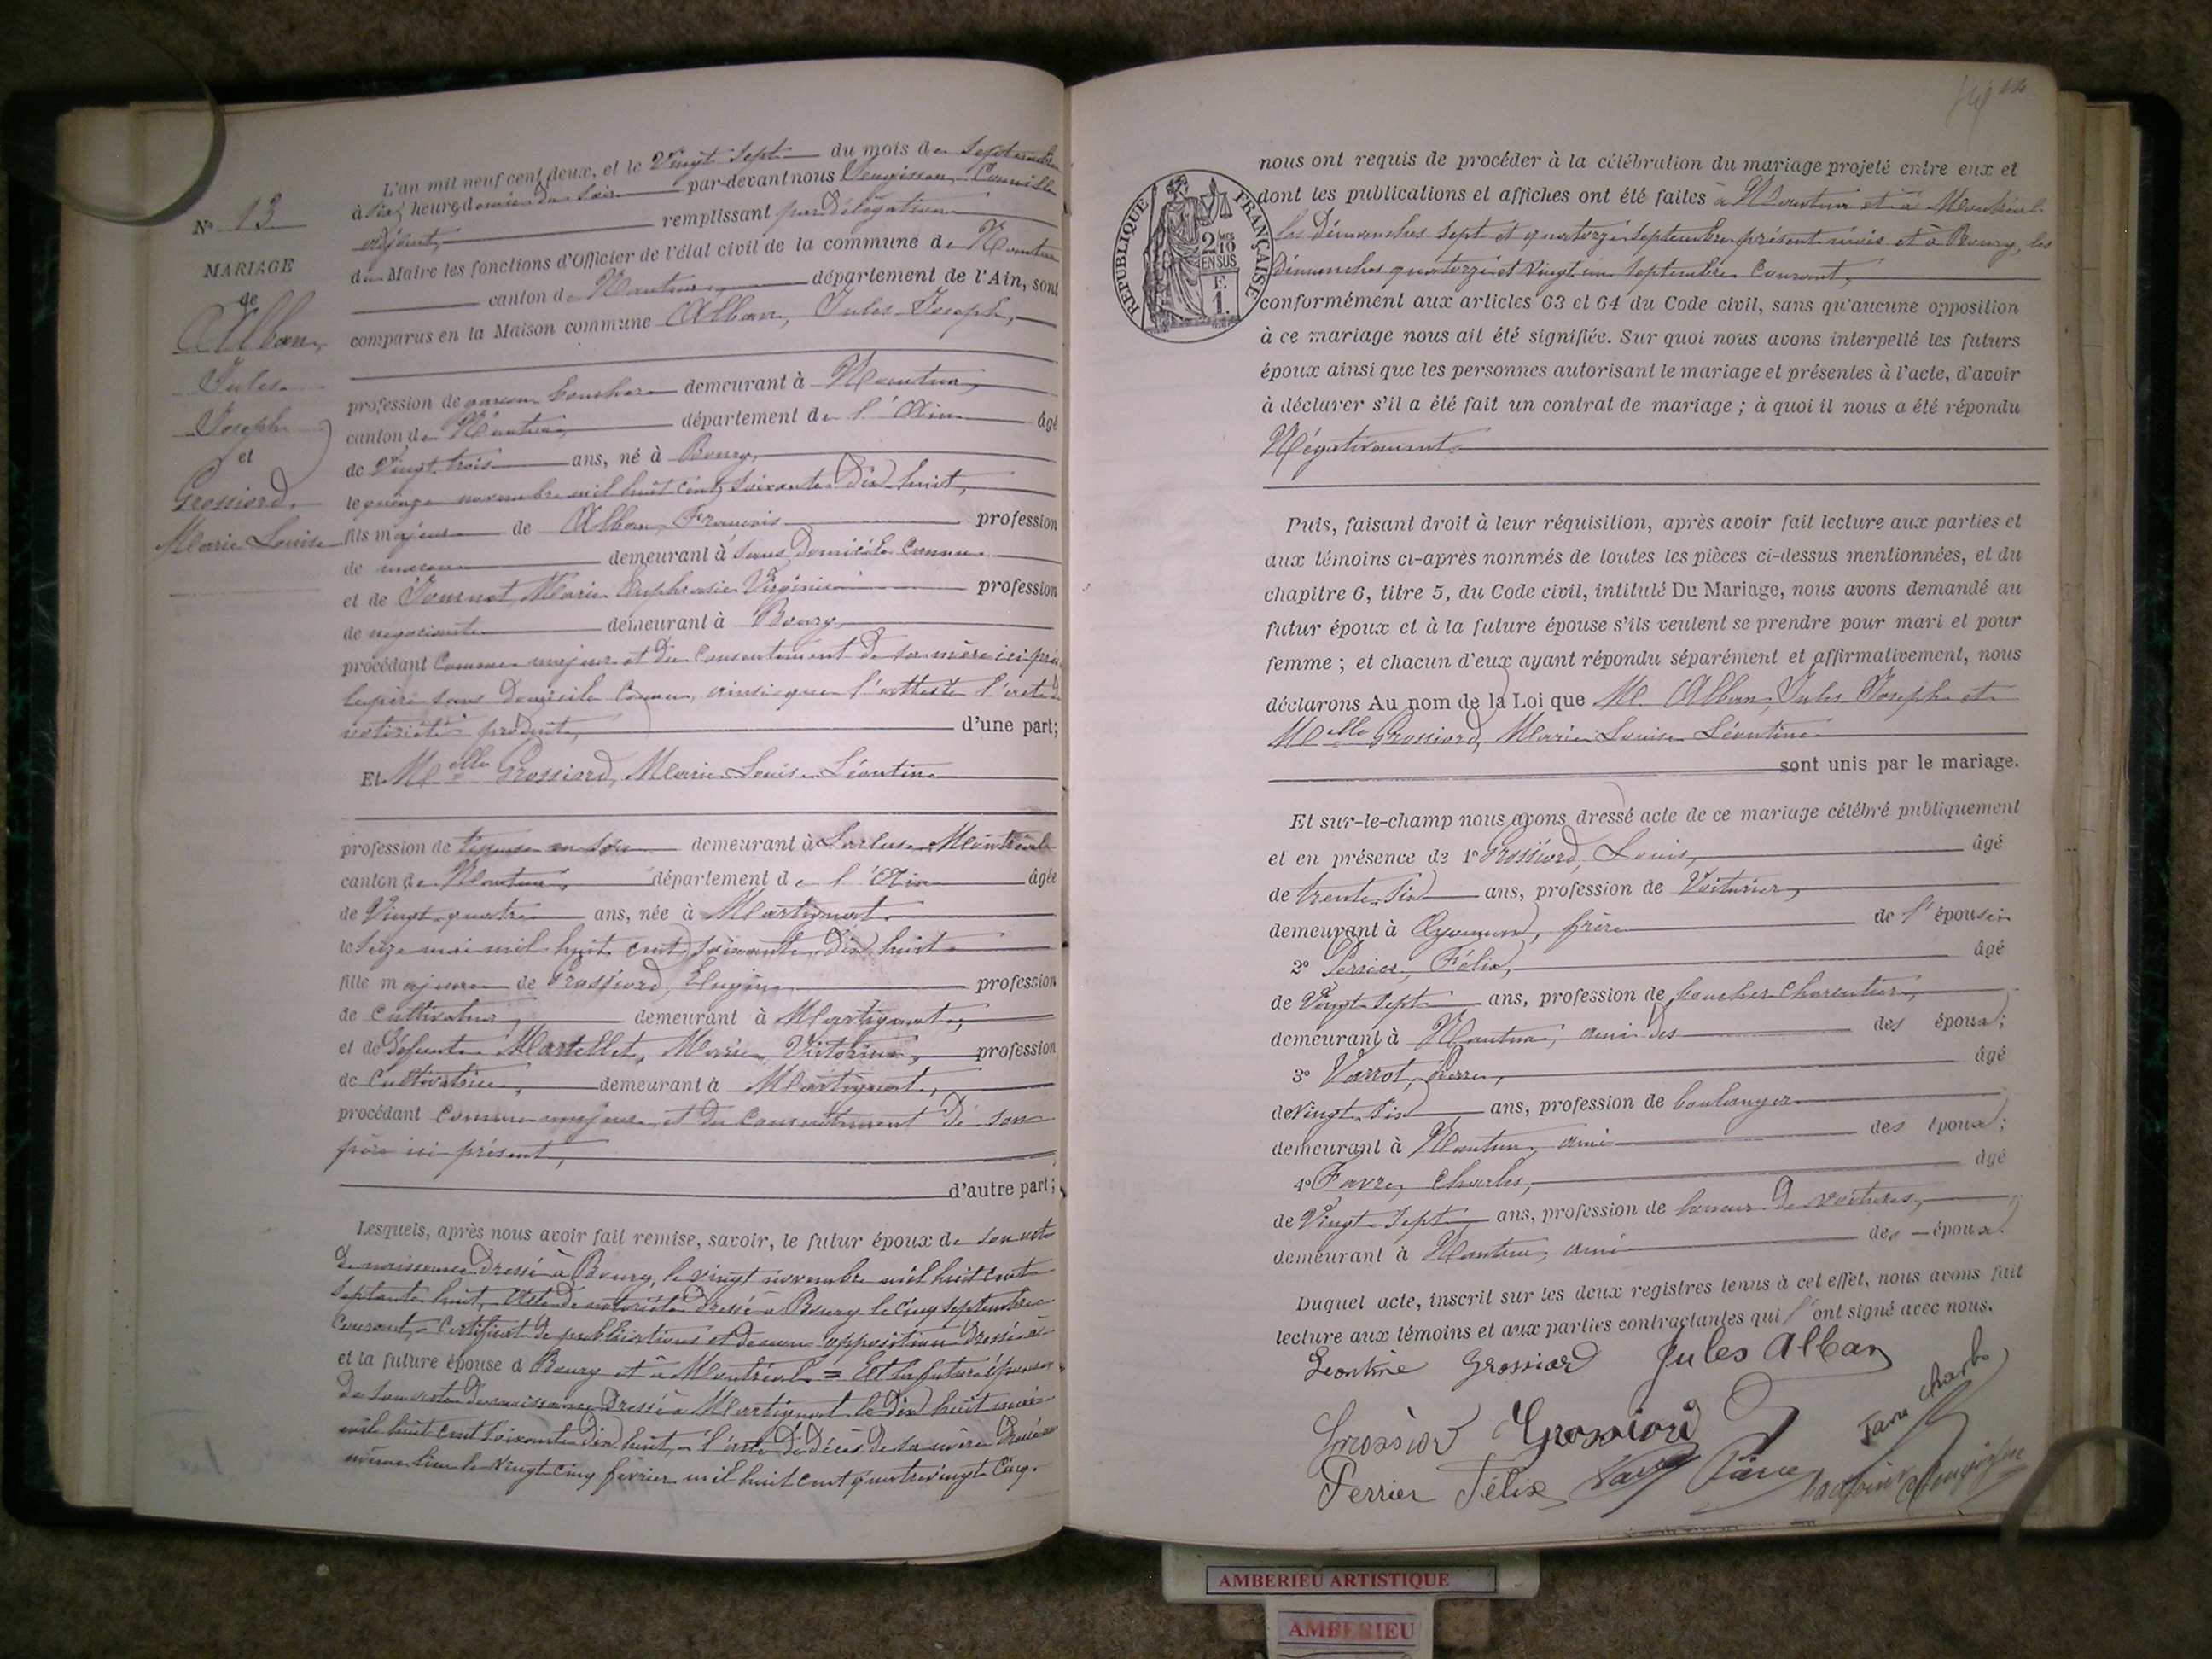 N° 13
MARIAGE
de
Alban,
Jules
Joseph
et
Grossiord,
Marie Louise
L'an mil neuf cent deux, et le Vingt Sept du mois de Septembre
à six heures du soir par-devant nous Camille
adjoint, remplissant par délégation
du Maire les fonctions d'Officier de l'état civil de la commune de Nantua
canton de Nantua, département de l'Ain, sont
comparus en la Maison commune Alban, Jules Joseph,
profession de garçon boucher demeurant à Nantua,
canton de Nantua, département de l'Ain âgé
de Vingt trois ans, né à Bourg,
le quinze novembre mil huit cent soixante dix huit,
fils majeur de Alban, François profession
de maçon demeurant à sans domicile connu
et de Journet, Marie Euphrasie Virginie profession
de négociante demeurant à Bourg,
procédant comme majeur et du consentement de sa mère ici
le père sans domicile connu, ainsi que l'atteste l'acte de
notoriété produit, d'une part;
Et Melle Grossiord, Marie Louise Léontine
profession de tisseuse en soie demeurant à Montréal
canton de Nantua, département de l'Ain âgée
de Vingt quatre ans, née à Martignat
le seize mai mil huit cent soixante dix huit
fille majeure de Grossiord, Eugène profession
de cultivateur, demeurant à Martignat,
et de défunte Martellet, Marie Victorine, profession
de cultivatrice, demeurant à Martignat,
procédant comme majeure et du consentement de son
père ici présent,
d'autre part;
Lesquels, après nous avoir fait remise, savoir, le futur époux de son acte
de naissance dressé à Bourg, le vingt novembre mil huit cent
septante huit, acte de notoriété dressé à Bourg le cinq septembre
courant, certificat de publications et de non opposition dressé à
et la future épouse d Bourg et à Montréal = Et la future épouse
de son acte de naissance dressé à Martignat le dix huit mai
mil huit cent soixante dix huit, l'acte de décès de sa mère dressé au
même lieu le vingt cinq février mil huit cent quatre vingt cinq.
RÉPUBLIQUE FRANÇAISE
2/10
EN SUS
F.
1.
nous ont requis de procéder à la célébration du mariage projeté entre eux et
dont les publications et affiches ont été faites à Nantua et à Montréal
les dimanches sept et quatorze septembre présent mois et à Bourg, les
dimanches quatorze et vingt un septembre courant,
conformément aux articles 63 et 64 du Code civil, sans qu'aucune opposition
à ce mariage nous ait été signifiée. Sur quoi nous avons interpellé les futurs
époux ainsi que les personnes autorisant le mariage et présentes à l'acte, d'avoir
à déclarer s'il a été fait un contrat de mariage; à quoi il nous a été répondu
Négativement.
Puis, faisant droit à leur réquisition, après avoir fait lecture aux parties et
aux témoins ci-après nommés de toutes les pièces ci-dessus mentionnées, et du
chapitre 6, titre 5, du Code civil, intitulé Du Mariage, nous avons demandé au
futur époux et à la future épouse s'ils veulent se prendre pour mari et pour
femme; et chacun d'eux ayant répondu séparément et affirmativement, nous
déclarons Au nom de la Loi que M. Alban, Jules Joseph et
Melle Grossiord, Marie Louise Léontine
sont unis par le mariage.
Et sur-le-champ nous avons dressé acte de ce mariage célébré publiquement
et en présence de 1° Grossiord, Louis, âgé
de trente six ans, profession de Voiturier,
demeurant à Oyonnax, frère de l'épouse
2° Perrier, Félix, âgé
de Vingt sept ans, profession de boucher charcutier,
demeurant à Nantua, ami des des époux;
3° Varrot, Pierre, âgé
de vingt six ans, profession de boulanger
demeurant à Nantua, ami des époux;
4° Favre, Charles, âgé
de Vingt sept ans, profession de loueur de voitures,
demeurant à Nantua, ami des époux.
Duquel acte, inscrit sur les deux registres tenus à cet effet, nous avons fait
lecture aux témoins et aux parties contractantes qui l'ont signé avec nous.
Leontine Grossiord Jules Alban
Grossiord Grossiord Favre Charles
Perrier Félix
AMBERIEU ARTISTIQUE
AMBERIEU